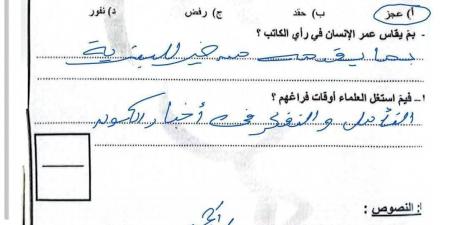 أ) عجز ب) حقد ج) رفض د) نفور
- بمَ يقاس عمر الإنسان في رأي الكاتب ؟
بما يقدمه من خير للبشرية
١- فيمَ استغل العلماء أوقات فراغهم ؟
التأمل والتفكر في أخبار الكون
: النصوص :